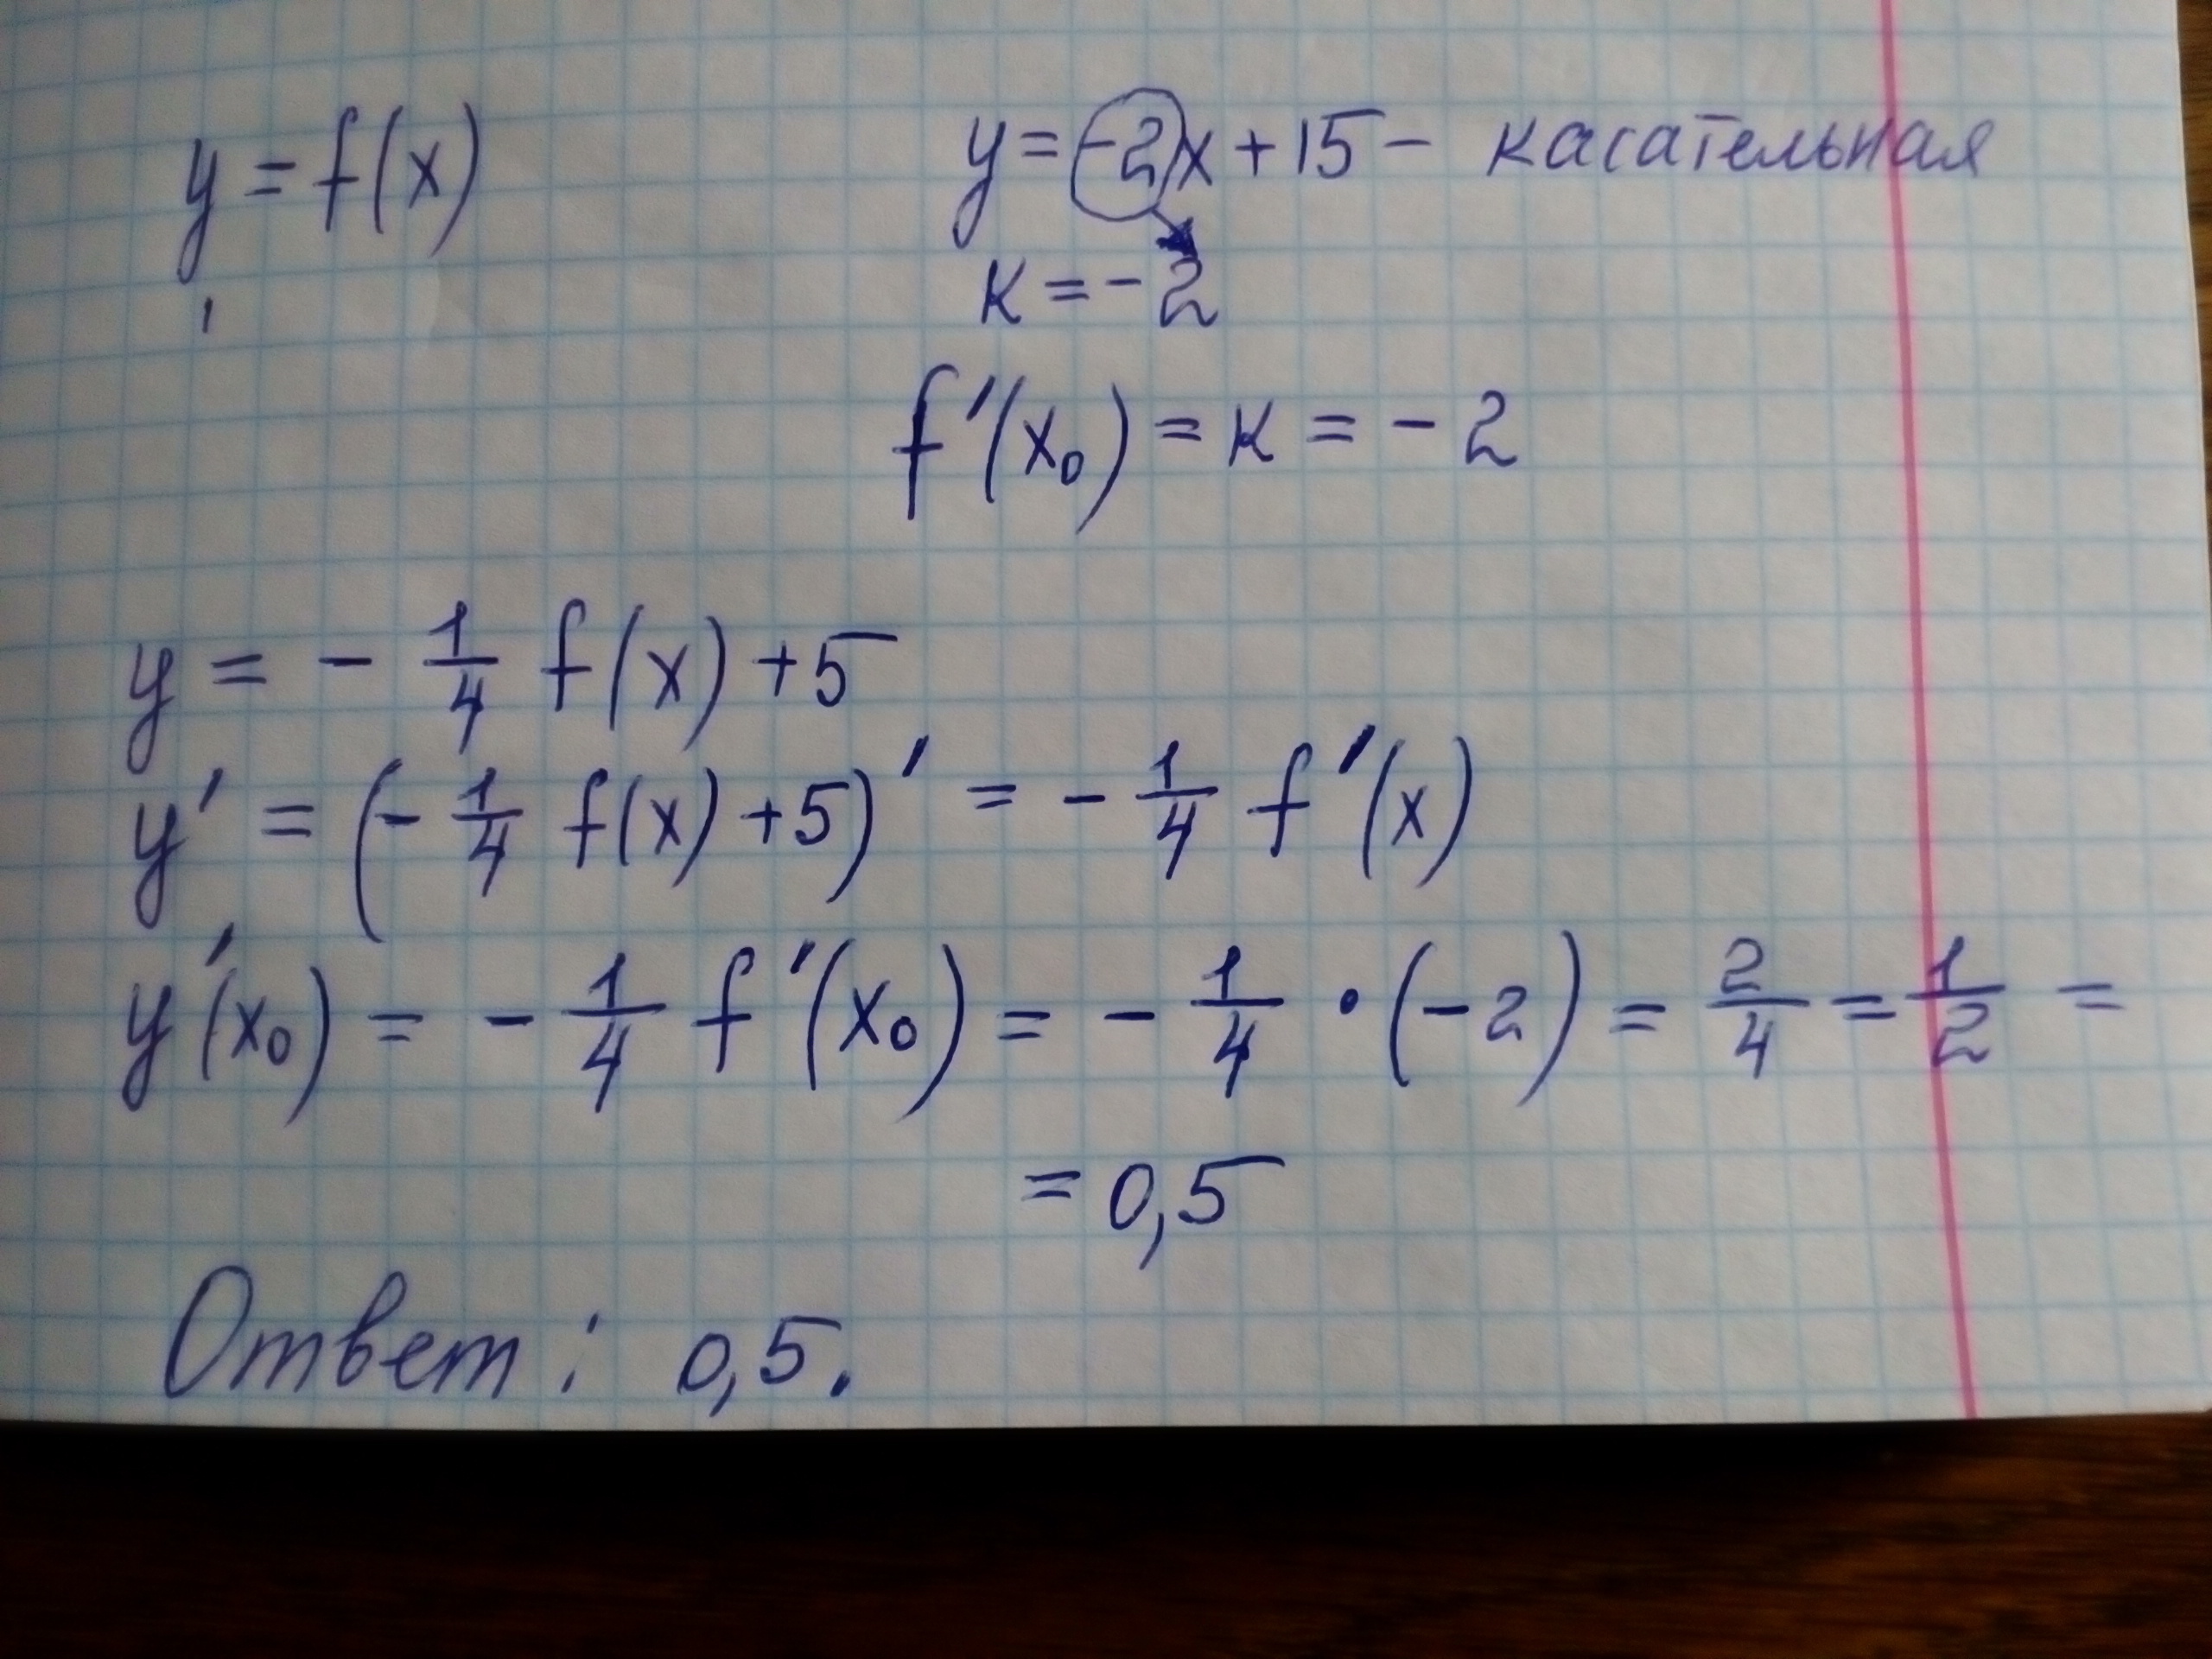 y = f(x)
y = -2x + 15 - касательная
к = -2
f'(x₀) = к = -2
y = - 1/4 f(x) + 5
y' = (- 1/4 f(x) + 5)' = - 1/4 f'(x)
y'(x₀) = - 1/4 f'(x₀) = - 1/4 · (-2) = 2/4 = 1/2 =
= 0,5
Ответ: 0,5.